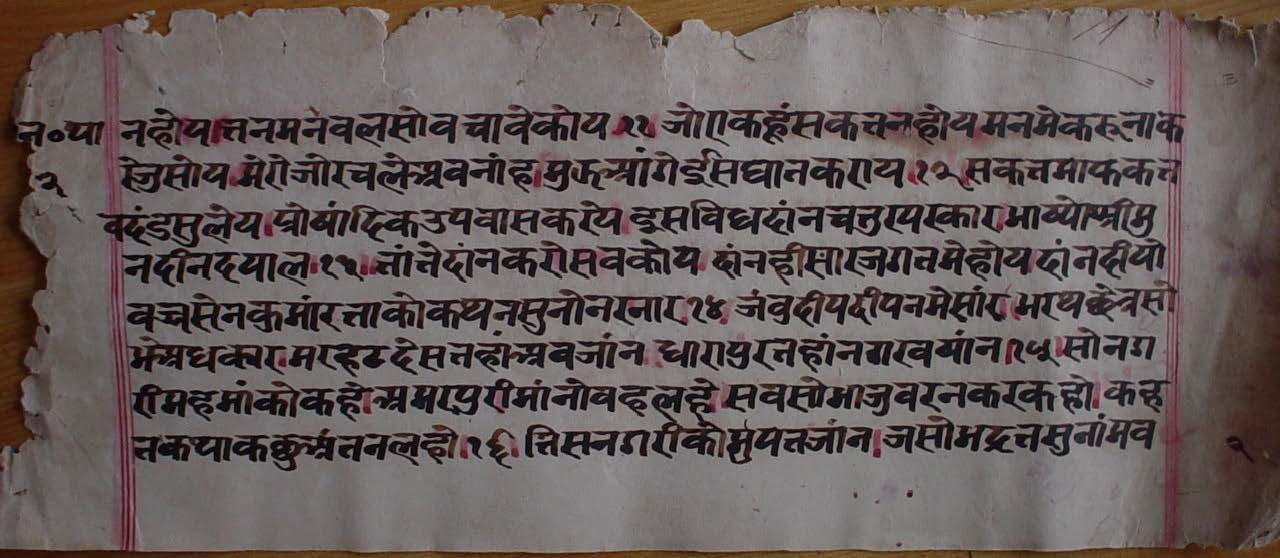 न॰पा नहोय तनमनवलसोवचावेकोय ११ जोएकहूंसकतनहोय मनमेकरूनाक
२ रेजुसोय मेरोजोरचलेअवनांह मुफआगेईसघातकराय १२ सकतमाफकत
वदंडसुलेय प्रोषादिकउपवासकरेय इसविधदांनचतुरपस्कार भाष्योश्रीमु
नदीनदयाल १३ तांतेदांनकरोसवकोय दांनहीसारजगतमेहोय दांनदीयो
वज्रसेनकुमांर ताकोकथनसुनोनरनार १४ जंवुदीपदीपनमेसांर भरथछेत्रसो
भेअधकार मरहटदेसतहांअवजांन धारापुरतहांनगरवषांन १५ सोनग
रीमहमांकोकहे अमरपुरीमांनोवहलहे सवसोभाजुवरनकरकहो कछ
नकथाकछुअंतनलहो १६ तिसनगरीकोभुपतजांन जसोभद्रतसुनांमव
२